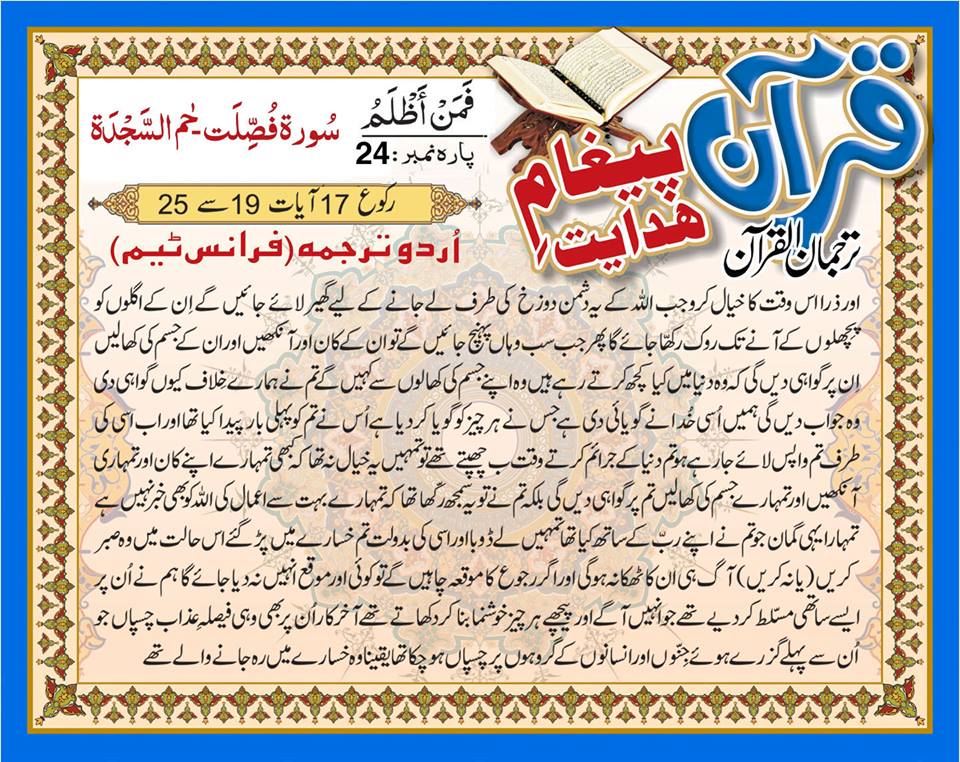 قرآن
پیغامِ
ھدایت
ترجمان القرآن
فَمَنْ أَظْلَمُ
پارہ نمبر:24
سُورة فُصِّلَت حٰم السَجْدَة
رکوع 17 آیات 19 سے 25
اُردو ترجمہ (فرانس ٹیم)
اور ذرا اس وقت کا خیال کرو جب اللہ کے یہ دشمن دوزخ کی طرف لے جانے کے لیے گھیر لائے جائیں گے اِن کے اگلوں کو
پچھلوں کے آنے تک روک رکھّا جائے گا پھر جب سب وہاں پہنچ جائیں گے تو ان کے کان اور آنکھیں اور ان کے جسم کی کھالیں
اِن پر گواہی دیں گی کہ وہ دنیا میں کیا کچھ کرتے رہے ہیں وہ اپنے جسم کی کھالوں سے کہیں گے تم نے ہمارے خلاف کیوں گواہی دی
وہ جواب دیں گی ہمیں اُسی خُدا نے گویائی دی ہے جس نے ہر چیز کو گویا کر دیا ہے اُس نے تم کو پہلی بار پیدا کیا تھا اور اب اسی کی
طرف تم واپس لائے جا رہے ہو تم دنیا کے جرائم کرتے وقت ب چھپتے تھے تو تمہیں یہ خیال نہ تھا کہ کبھی تمہارے اپنے کان اور تمہاری
آنکھیں اور تمہارے جسم کی کھالیں تم پر گواہی دیں گی بلکہ تم نے تو یہ سمجھ رکھّا تھا کہ تمہارے بہت سے اعمال کی اللہ کو بھی خبر نہیں ہے
تمہارا یہی گمان جو تم نے اپنے ربّ کے ساتھ کیا تھا تمہیں لے ڈوبا اور اسی کی بدولت تم خسارے میں پڑ گئے اس حالت میں وہ صبر
کریں (یا نہ کریں) آگ ہی ان کا ٹھکانہ ہوگی اور اگر رجوع کا موقعہ چاہیں گے تو کوئی اور موقع انہیں نہ دیا جائے گا ہم نے اُن پر
ایسے ساتھی مسلّط کر دیے تھے جو انہیں آگے اور پیچھے ہر چیز خوشنما بنا کر دکھاتے تھے آخر کار اُن پر بھی وہی فیصلہِ عذاب چسپاں جو
اُن سے پہلے گزرے ہوئے جِنّوں اور انسانوں کے گروہوں پر چسپاں ہو چکا تھا یقیناً وہ خسارے میں رہ جانے والے تھے